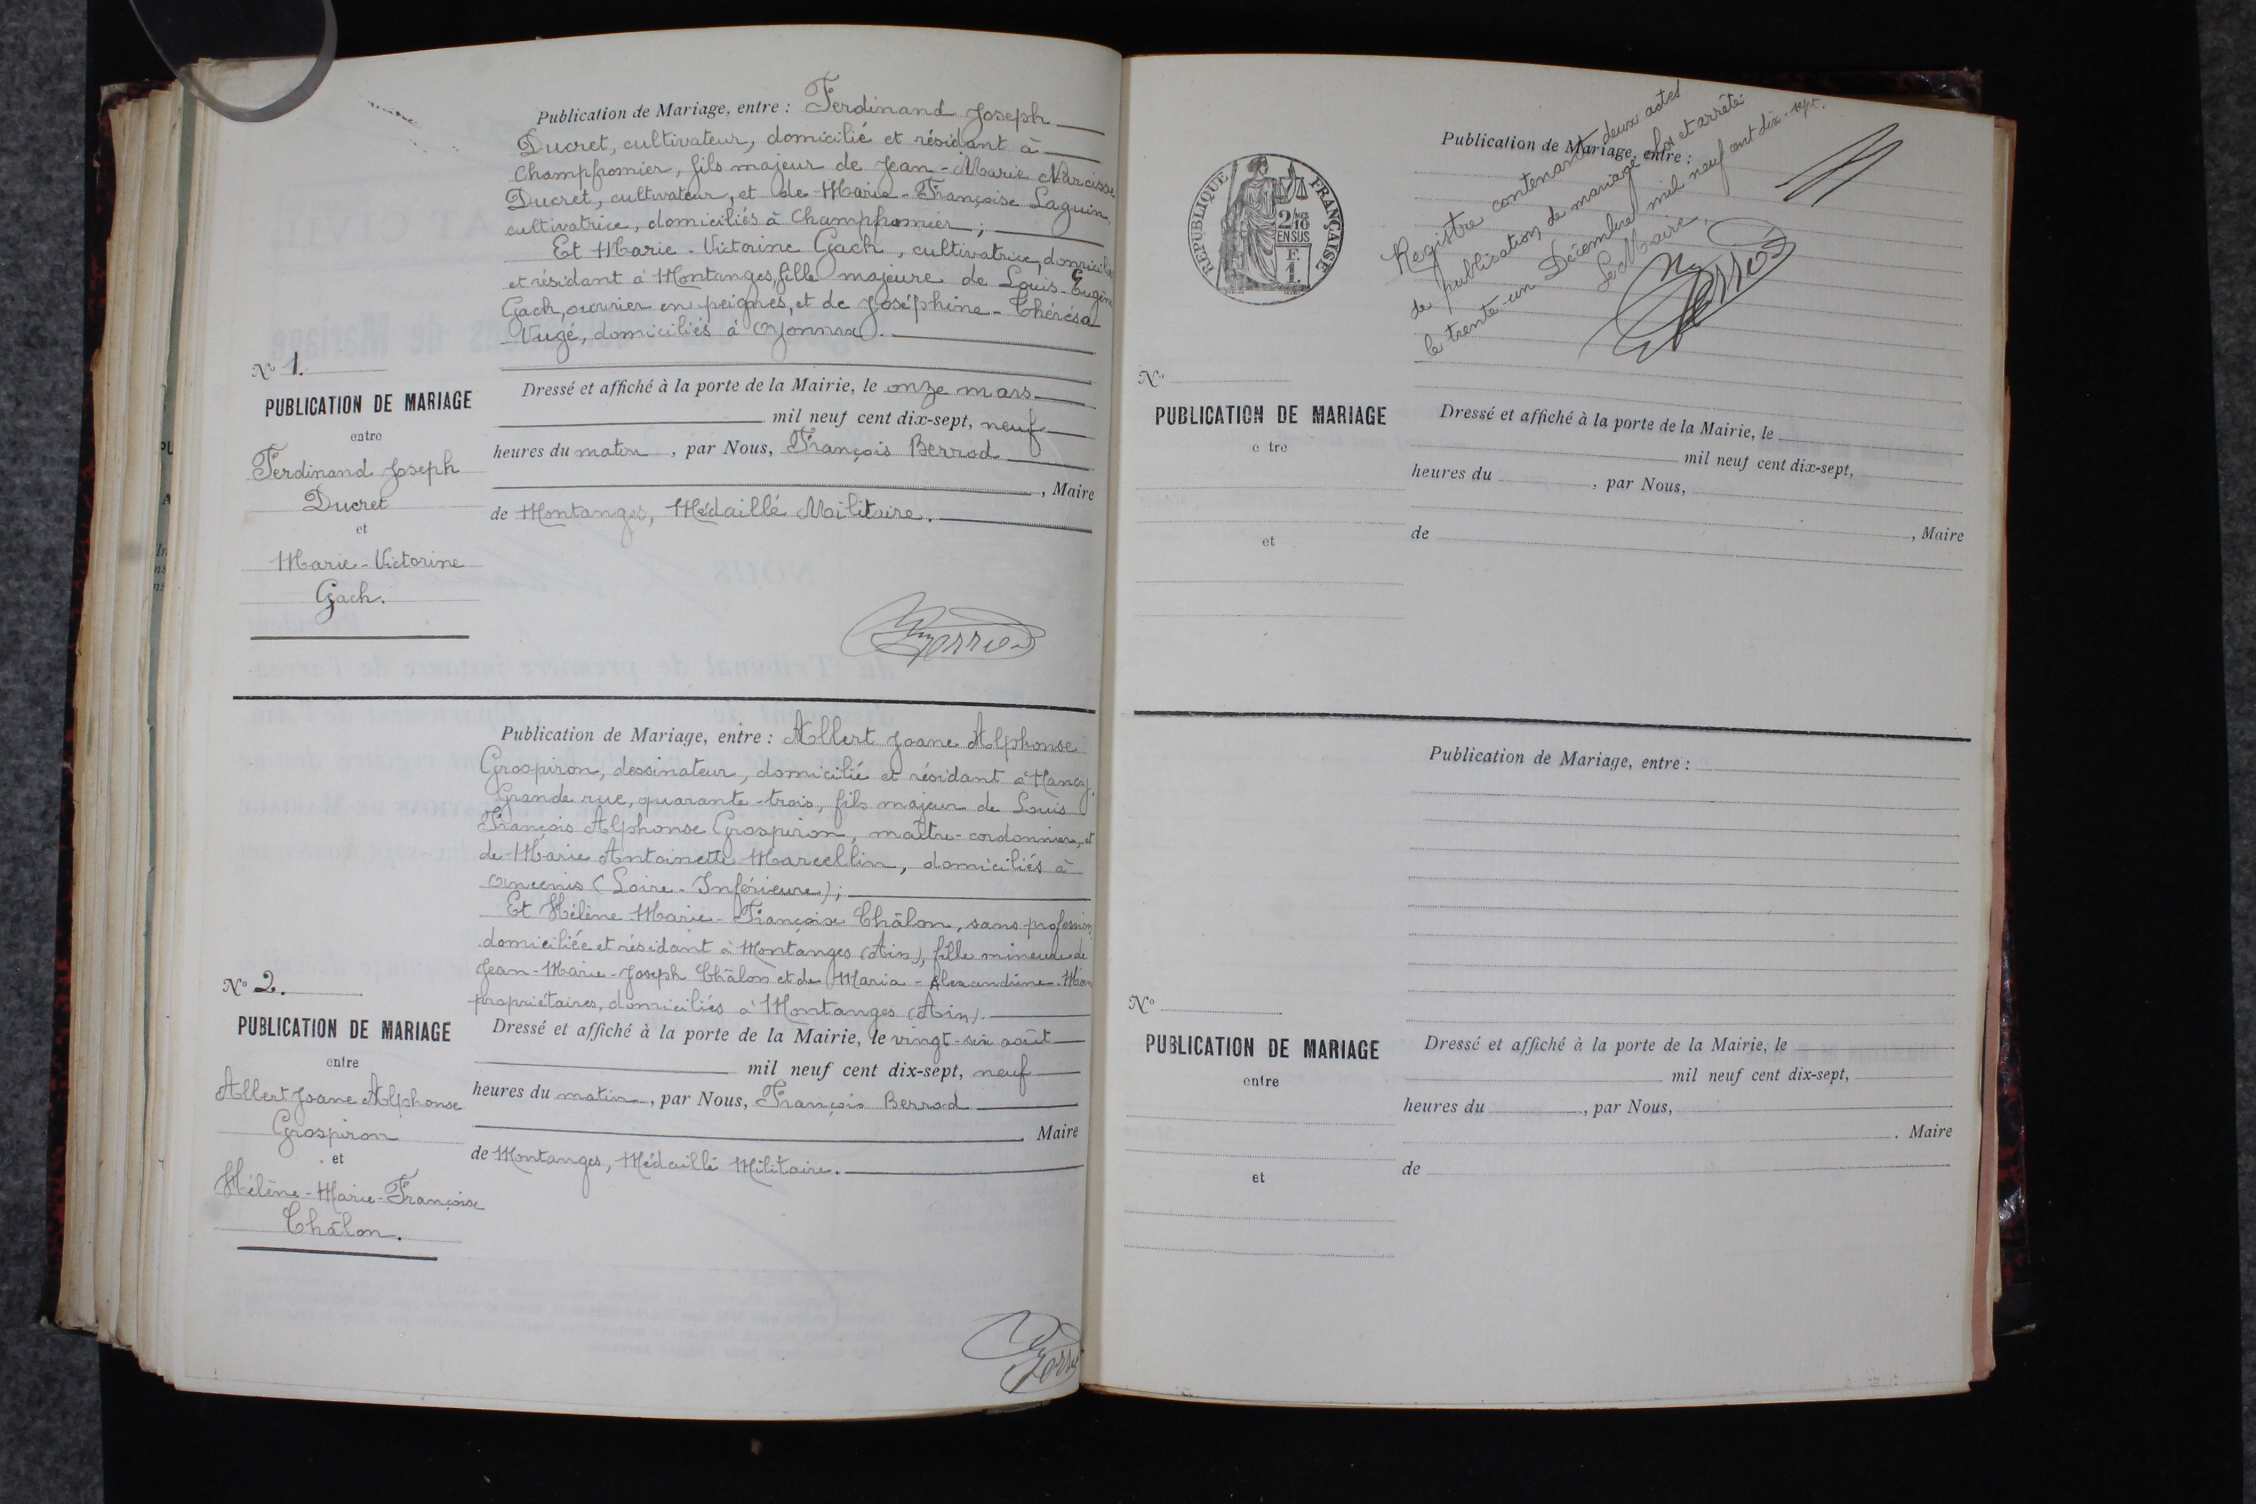 Publication de Mariage, entre : Ferdinand Joseph
Ducret, cultivateur, domicilié et résidant à
Champfromier, fils majeur de Jean-Marie Narcisse
Ducret, cultivateur, et de Marie-Françoise Laguin,
cultivatrice, domiciliés à Champfromier ;
Et Marie-Victorine Gach, cultivatrice, domiciliée
et résidant à Montanges, fille majeure de Louis-Eugène
Gach, ouvrier en peignes, et de Joséphine-Thérésa
Vugé, domiciliés à Oyonnax.
Nº 1.
PUBLICATION DE MARIAGE
entre
Ferdinand Joseph
Ducret
et
Marie-Victorine
Gach.
Dressé et affiché à la porte de la Mairie, le onze mars
mil neuf cent dix-sept, neuf
heures du matin, par Nous, François Berrod
, Maire
de Montanges, Médaillé Militaire.
Berrod
Publication de Mariage, entre : Albert Joane Alphonse
Grospiron, dessinateur, domicilié et résidant à Nancy,
Grande rue, quarante-trois, fils majeur de Louis
François Alphonse Grospiron, maître-cordonnier, et
de Marie Antoinette Marcellin, domiciliés à
Ancenis (Loire-Inférieure) ;
Et Hélène Marie-Françoise Châlon, sans profession,
domiciliée et résidant à Montanges (Ain), fille mineure de
Jean-Marie-Joseph Châlon et de Maria-Alexandrine
propriétaires, domiciliés à Montanges (Ain).
Nº 2.
PUBLICATION DE MARIAGE
entre
Albert Joane Alphonse
Grospiron
et
Hélène-Marie-Françoise
Châlon.
Dressé et affiché à la porte de la Mairie, le vingt-six août
mil neuf cent dix-sept, neuf
heures du matin, par Nous, François Berrod
. Maire
de Montanges, Médaillé Militaire.
Berrod
RÉPUBLIQUE FRANÇAISE
2/10
EN SUS
F.
1.
Publication de Mariage, entre :
Registre contenant deux actes
de publication de mariage clos et arrêté
le trente-un Décembre mil neuf cent dix-sept.
Le Maire,
Berrod
Nº
PUBLICATION DE MARIAGE
e tre
et
Dressé et affiché à la porte de la Mairie, le
mil neuf cent dix-sept,
heures du , par Nous,
de , Maire
Publication de Mariage, entre :
Nº
PUBLICATION DE MARIAGE
entre
et
Dressé et affiché à la porte de la Mairie, le
mil neuf cent dix-sept,
heures du , par Nous,
. Maire
de